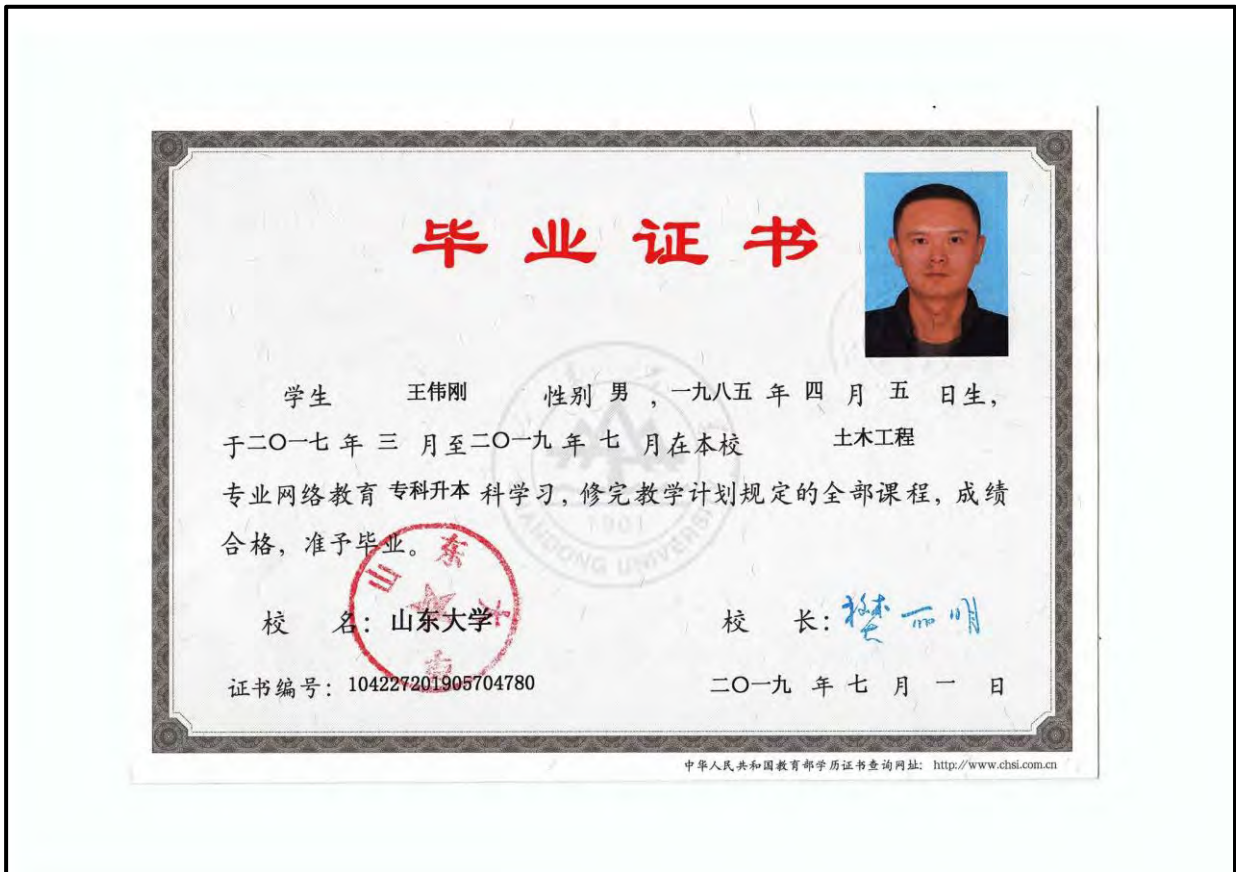 毕业证书
学生 王伟刚 性别 男 ，一九八五 年 四 月 五 日生，
于二〇一七 年 三 月至二〇一九 年 七 月在本校 土木工程
专业网络教育 专科升本 科学习，修完教学计划规定的全部课程，成绩
合格，准予毕业。
1901
SHANDONG UNIVERSITY
山东大学
校 名：山东大学 校 长：樊丽明
证书编号：104227201905704780 二〇一九 年 七 月 一 日
中华人民共和国教育部学历证书查询网址：http://www.chsi.com.cn